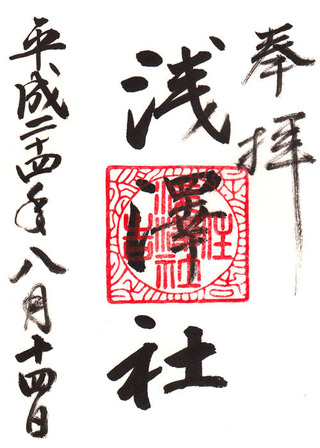 奉拝
浅澤社
平成二十四年八月十四日